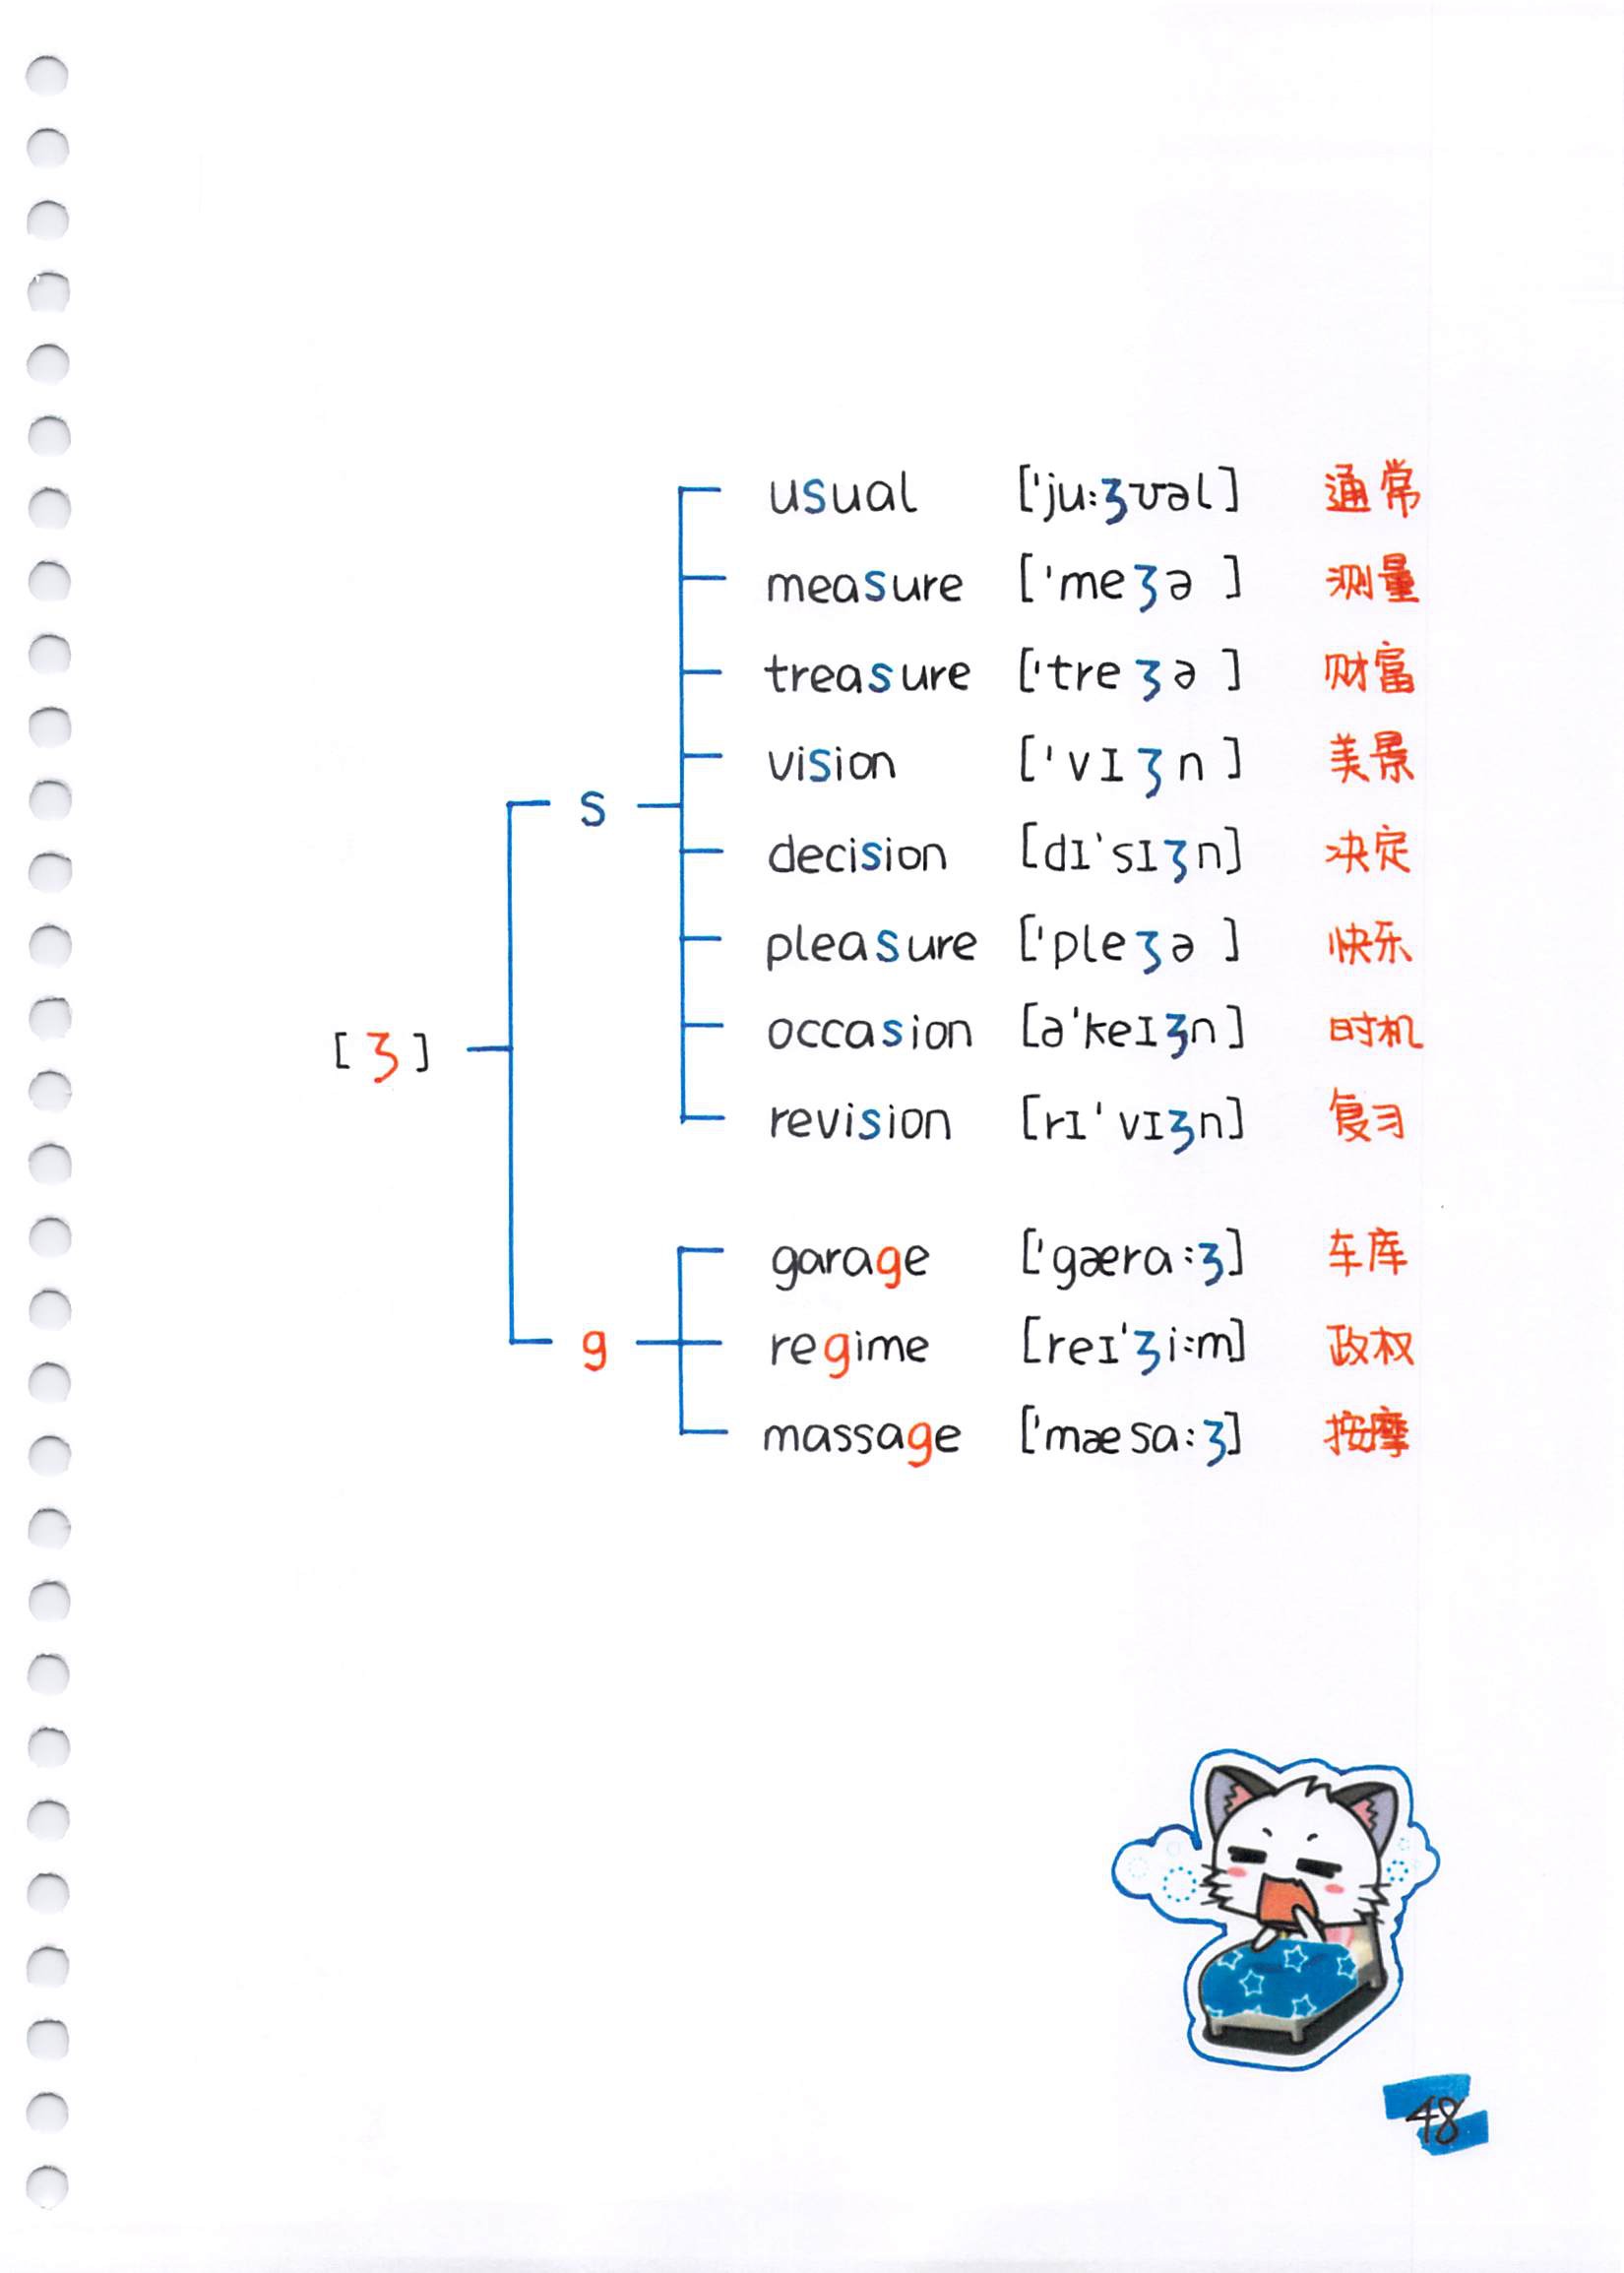 usual ['ju:ʒʊəl] 通常
measure ['meʒə] 测量
treasure ['treʒə] 财富
vision ['vɪʒn] 美景
s
decision [dɪ'sɪʒn] 决定
pleasure ['pleʒə] 快乐
occasion [ə'keɪʒn] 时机
[ʒ]
revision [rɪ'vɪʒn] 复习
garage ['gæra:ʒ] 车库
g
regime [reɪ'ʒi:m] 政权
massage ['mæsa:ʒ] 按摩
48